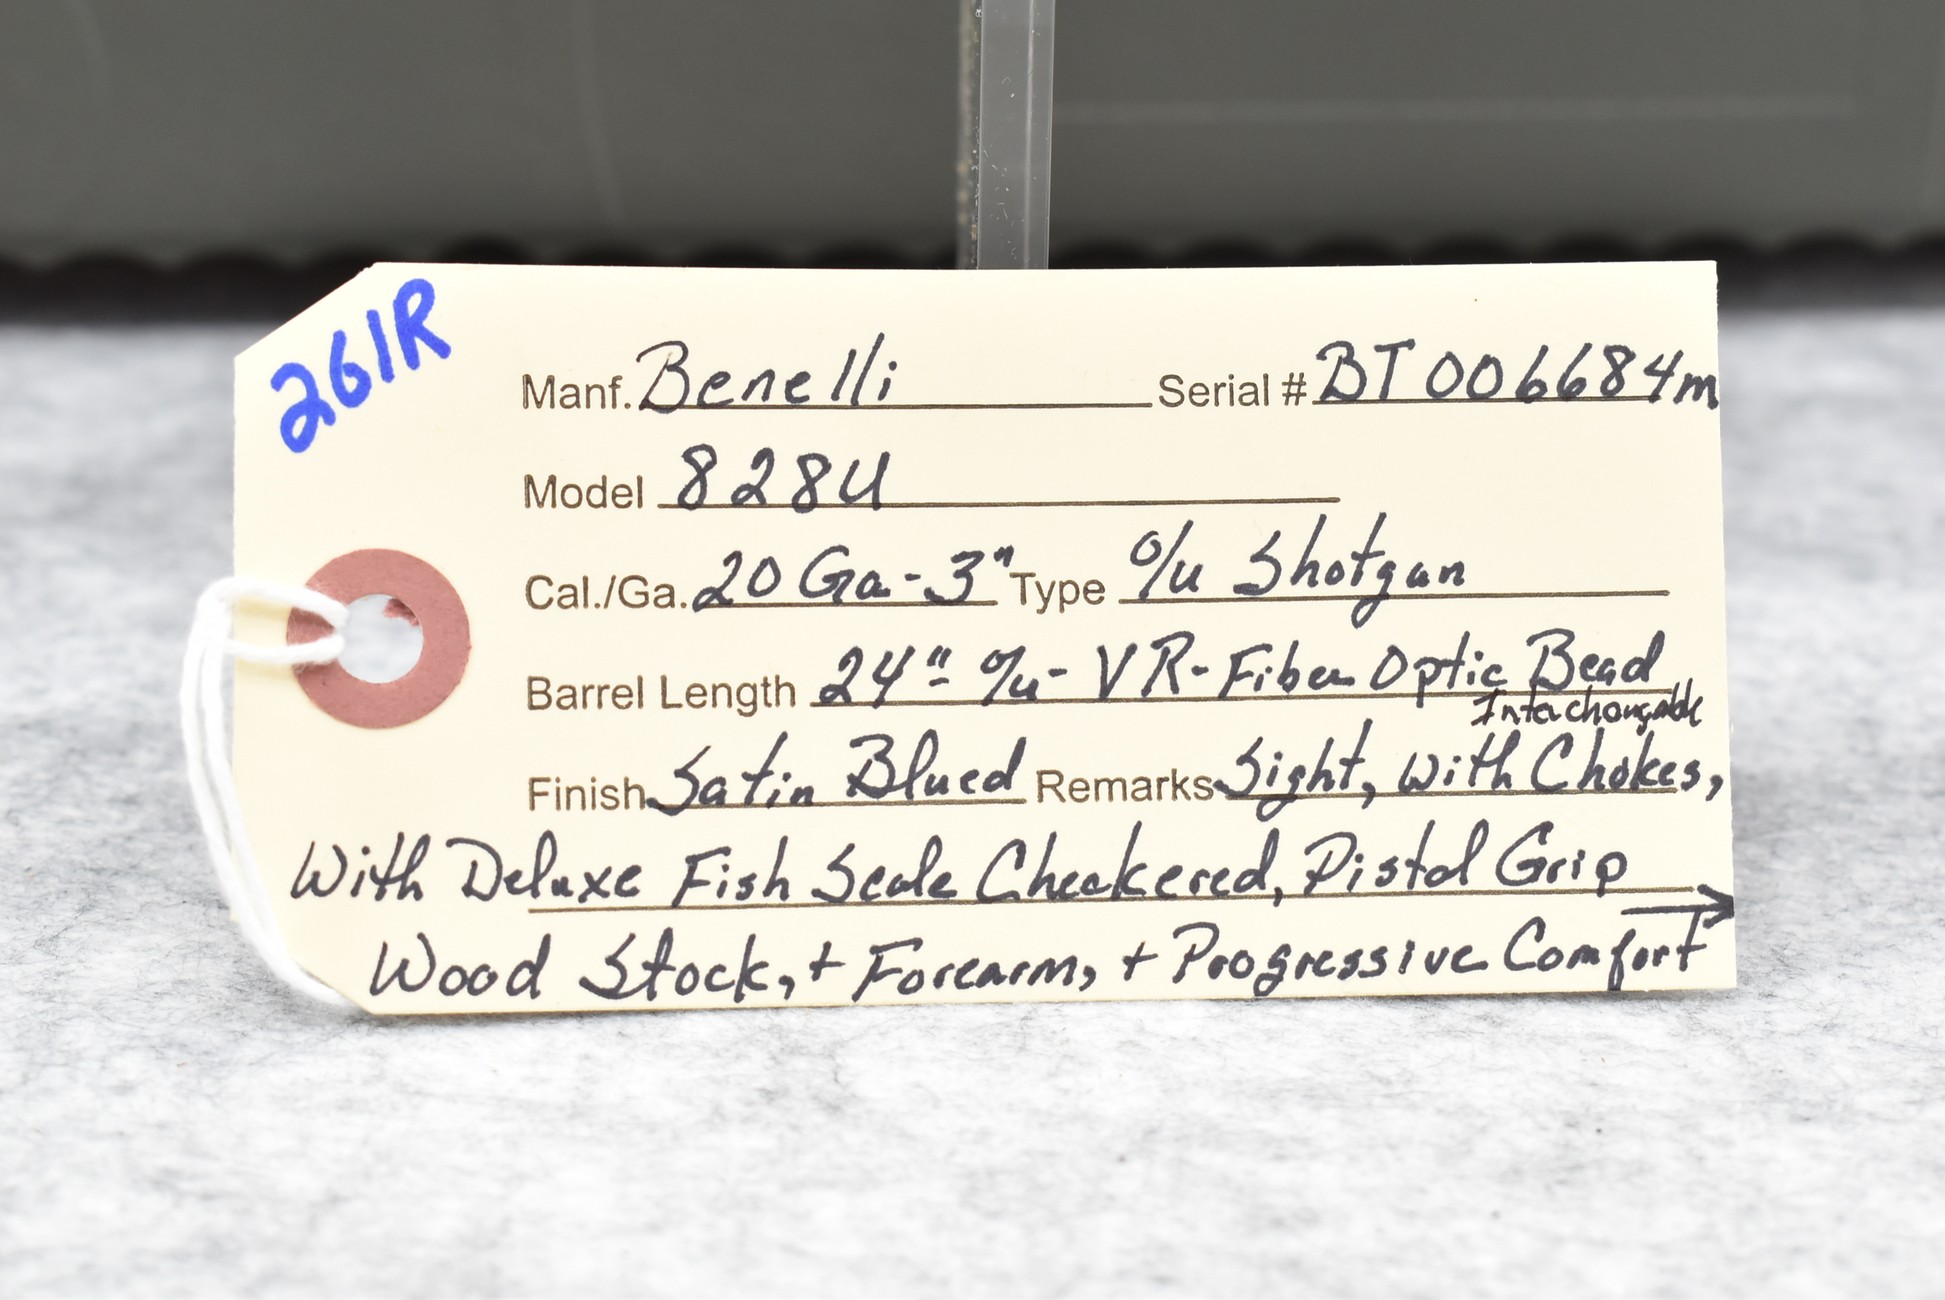 261R
Manf. Benelli Serial # BT006684m
Model 828U
Cal./Ga. 20 Ga-3" Type O/u Shotgun
Barrel Length 24" O/u- VR-Fiber Optic Bead
Interchangable
Finish Satin Blued Remarks Sight, with Chokes,
With Deluxe Fish Scale Checkered, Pistol Grip
Wood Stock, + Forearm, + Progressive Comfort →